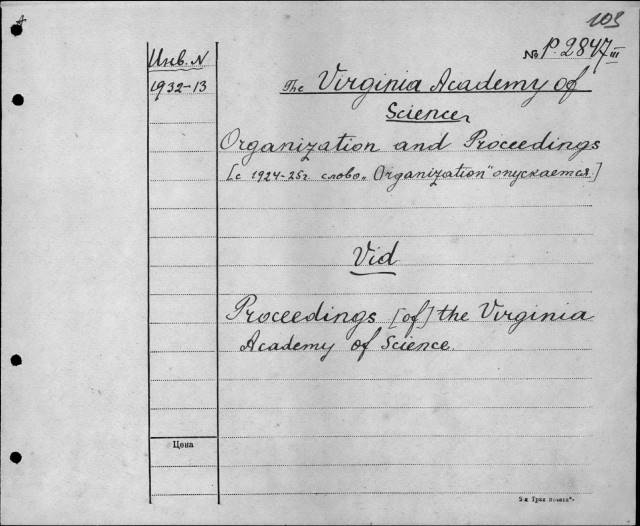 103
Инв. N
№ P. 2847 III
1932-13
The Virginia Academy of
Science,
Organization and Proceedings
[с 1924-25г слово „Organization" опускается.]
Vid
Proceedings [of] the Virginia
Academy of Science.
Цена